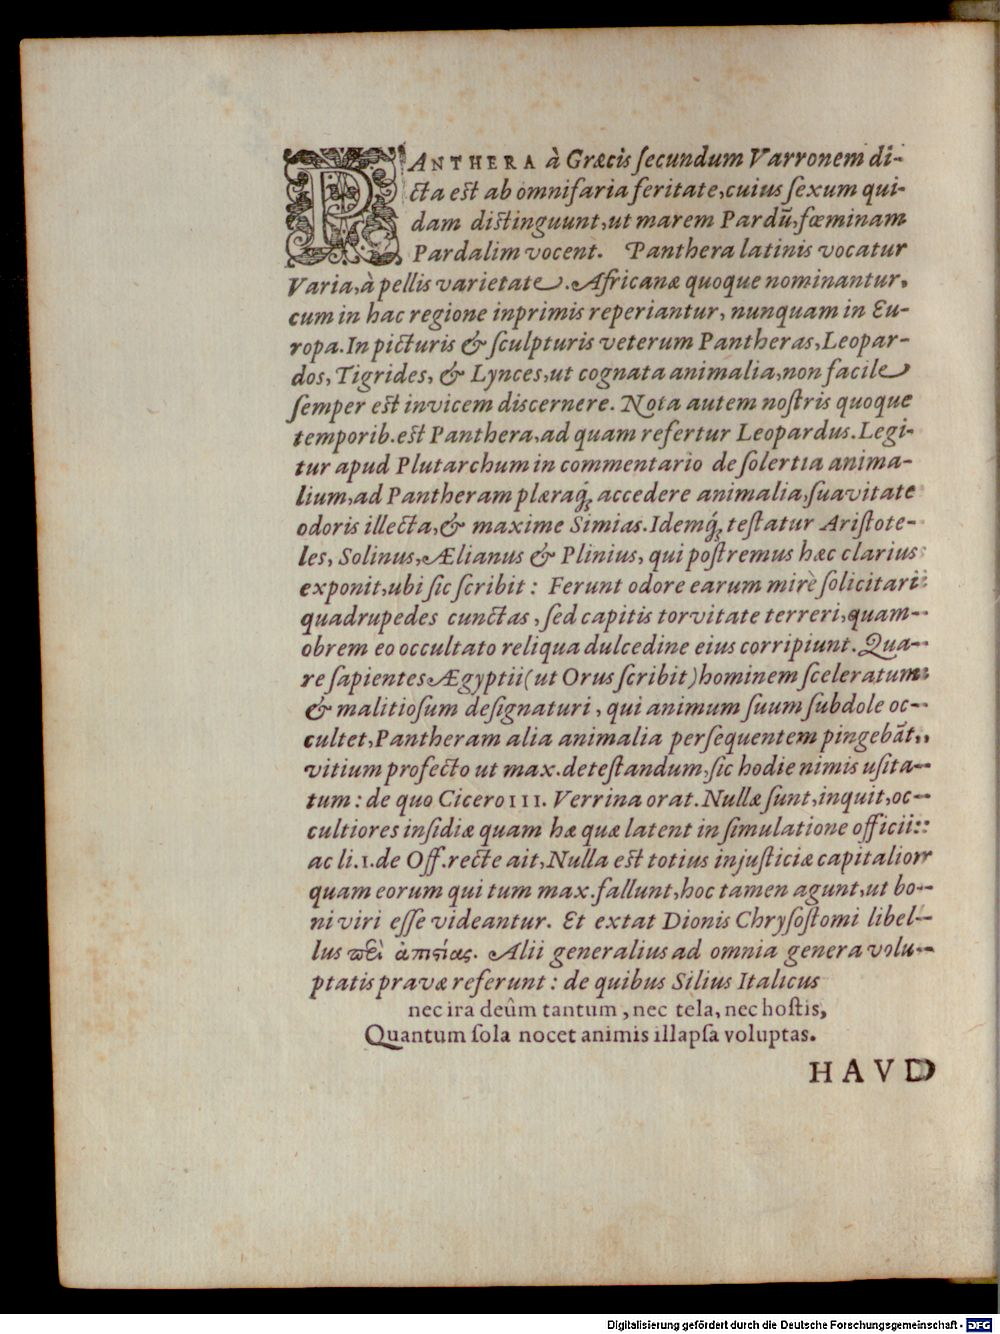 PANTHERA à Græcis ſecundum Varronem di-
cta est ab omnifaria feritate, cuius ſexum qui-
dam distinguunt, ut marem Pardũ, fœminam
Pardalim vocent. Panthera latinis vocatur
Varia, à pellis varietate. Africanæ quoque nominantur,
cum in hac regione inprimis reperiantur, nunquam in Eu-
ropa. In picturis & ſculpturis veterum Pantheras, Leopar-
dos, Tigrides, & Lynces, ut cognata animalia, non facile
ſemper est invicem discernere. Nota autem noſtris quoque
temporib. est Panthera, ad quam refertur Leopardus. Legi-
tur apud Plutarchum in commentario de ſolertia anima-
lium, ad Pantheram plæraq́; accedere animalia, ſuavitate
odoris illecta, & maxime Simias. Idemq́; teſtatur Ariſtote-
les, Solinus, Ælianus & Plinius, qui poſtremus hæc clarius
exponit, ubi ſic ſcribit: Ferunt odore earum mirè ſolicitari
quadrupedes cunctas, ſed capitis torvitate terreri, quam-
obrem eo occultato reliqua dulcedine eius corripiunt. Qua-
re ſapientes Ægyptii (ut Orus ſcribit) hominem ſceleratum
& malitioſum deſignaturi, qui animum ſuum ſubdole oc-
cultet, Pantheram alia animalia perſequentem pingebãt,
vitium profecto ut max. deteſtandum, ſic hodie nimis uſita-
tum: de quo Cicero III. Verrina orat. Nullæ ſunt, inquit, oc-
cultiores inſidiæ quam hæ quæ latent in ſimulatione officii:
ac li. 1. de Off. recte ait, Nulla est totius injuſticiæ capitalior
quam eorum qui tum max. fallunt, hoc tamen agunt, ut bo-
ni viri eſſe videantur. Et extat Dionis Chryſoſtomi libel-
lus πεὶ ἀπιςίας. Alii generalius ad omnia genera volu-
ptatis pravæ referunt: de quibus Silius Italicus
nec ira deûm tantum, nec tela, nec hoſtis,
Quantum ſola nocet animis illapſa voluptas.
HAVD
Digitalisierung gefördert durch die Deutsche Forschungsgemeinschaft - DFG